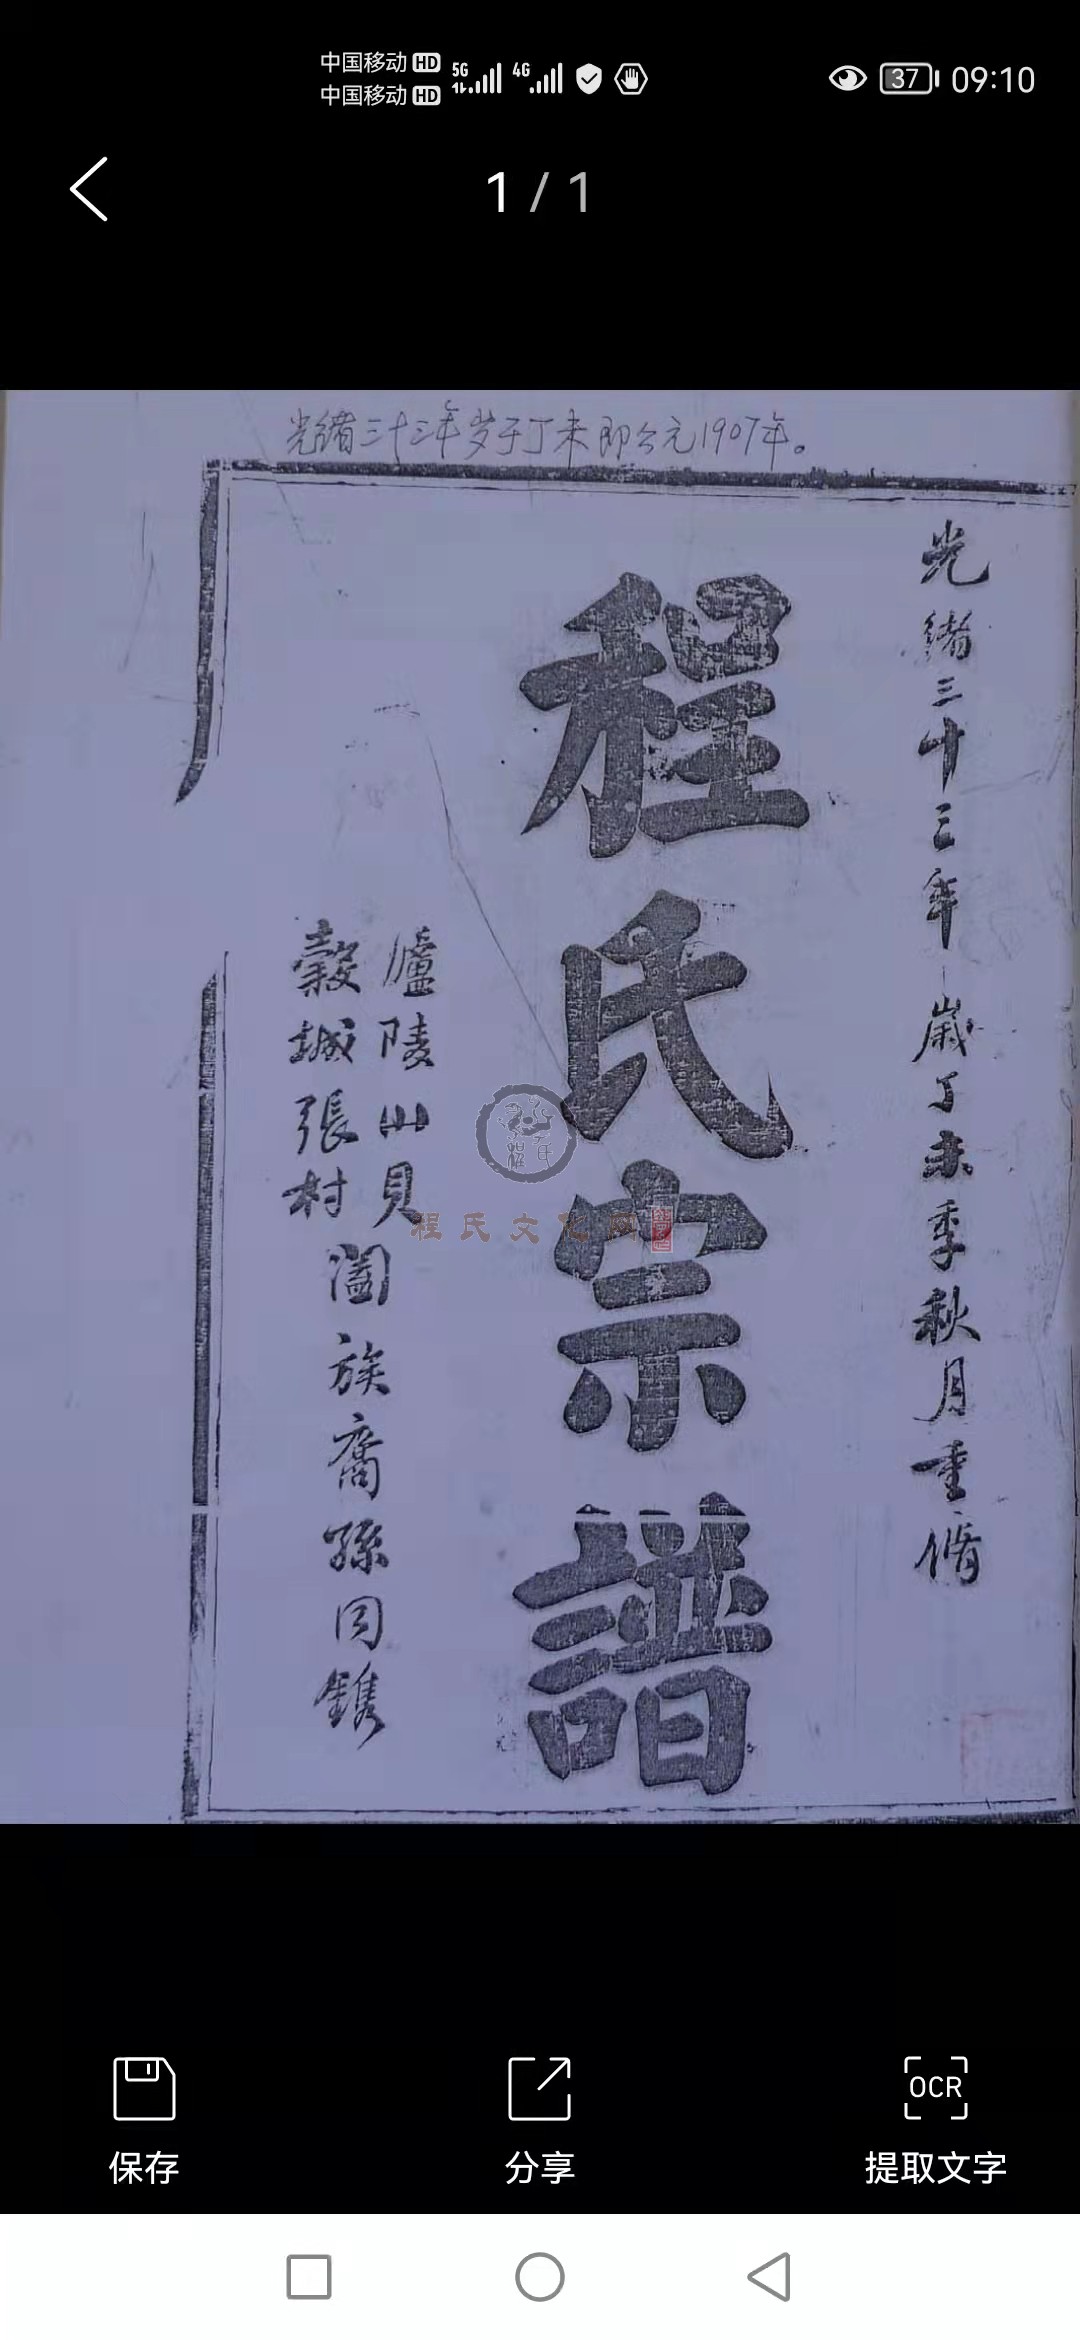 中国移动 HD 5G 4G 37 09:10
中国移动 HD
1 / 1
光緒三十三年岁于丁未即公元1907年。
光緒三十三年歲丁未季秋月重脩
程氏宗譜
廬陵山貝
穀城張村
闔族裔孫同鐫
程氏文化网
保存
分享
OCR
提取文字